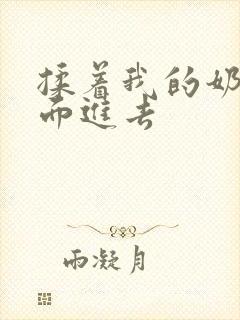 揉着我的奶
而進去
雨凝月